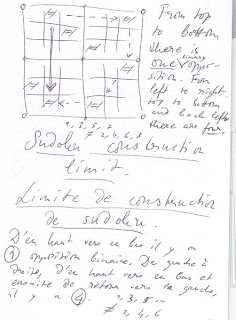 From top
to bottom
there is
one binary oppo-
sition. From
left to right
top to bottom
and back left
there are four.
1, 3, 5, 7
≠ 2, 4, 6, 8
Sudoku construction
limit.
Limite de construction
de sudoku.
D'en haut vers en bas il y a
1 opposition binaire. De gauche à
droite, d'en haut vers en bas et
ensuite de retour vers la gauche,
il y a 4. 1, 3, 5...
≠ 2, 4, 6